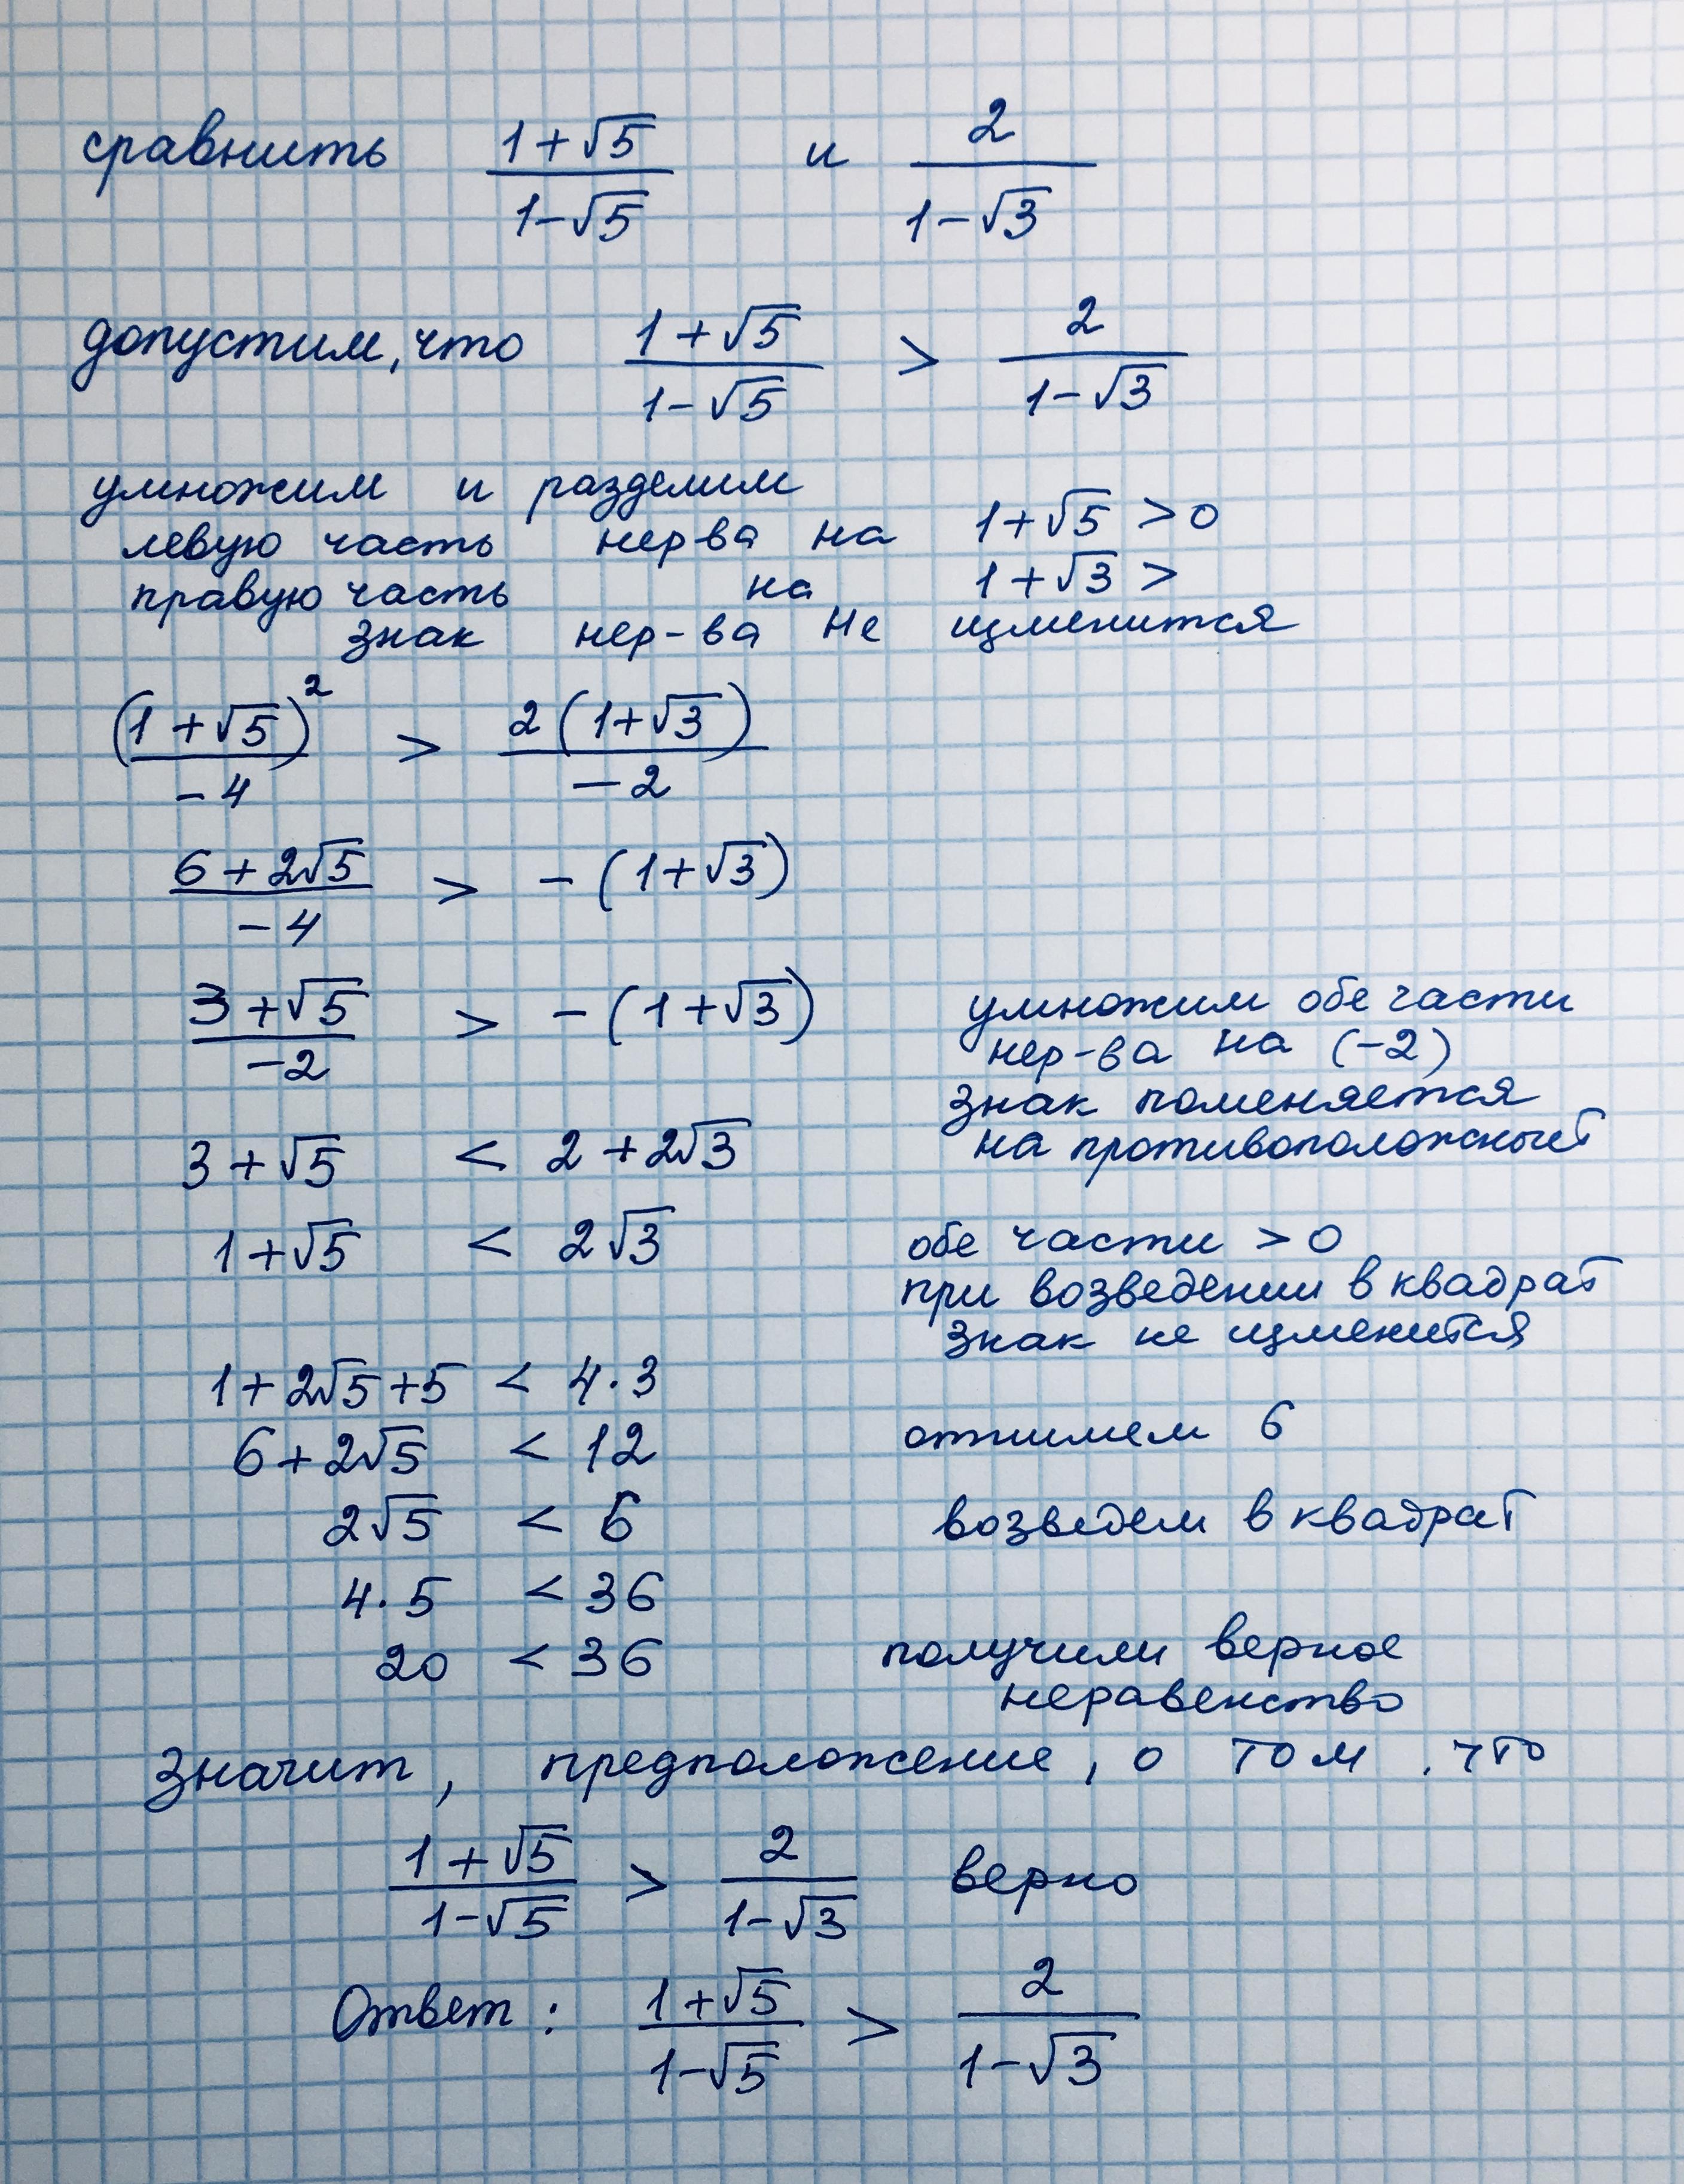 сравнить (1+√5)/(1-√5) и 2/(1-√3)
допустим, что (1+√5)/(1-√5) > 2/(1-√3)
умножим и разделим
левую часть нер ва на 1+√5 >0
правую часть на 1+√3 >
знак нер-ва не изменится
(1+√5)²/-4 > 2(1+√3)/-2
(6+2√5)/-4 > -(1+√3)
(3+√5)/-2 > -(1+√3) умножим обе части
нер-ва на (-2)
знак поменяется
на противоположный
3+√5 < 2+2√3
1+√5 < 2√3 обе части >0
при возведении в квадрат
знак не изменится
1+2√5+5 < 4·3
6+2√5 < 12 отнимем 6
2√5 < 6 возведем в квадрат
4·5 < 36
20 < 36 получили верное
неравенство
Значит, предположение, о том, что
(1+√5)/(1-√5) > 2/(1-√3) верно
Ответ: (1+√5)/(1-√5) > 2/(1-√3)